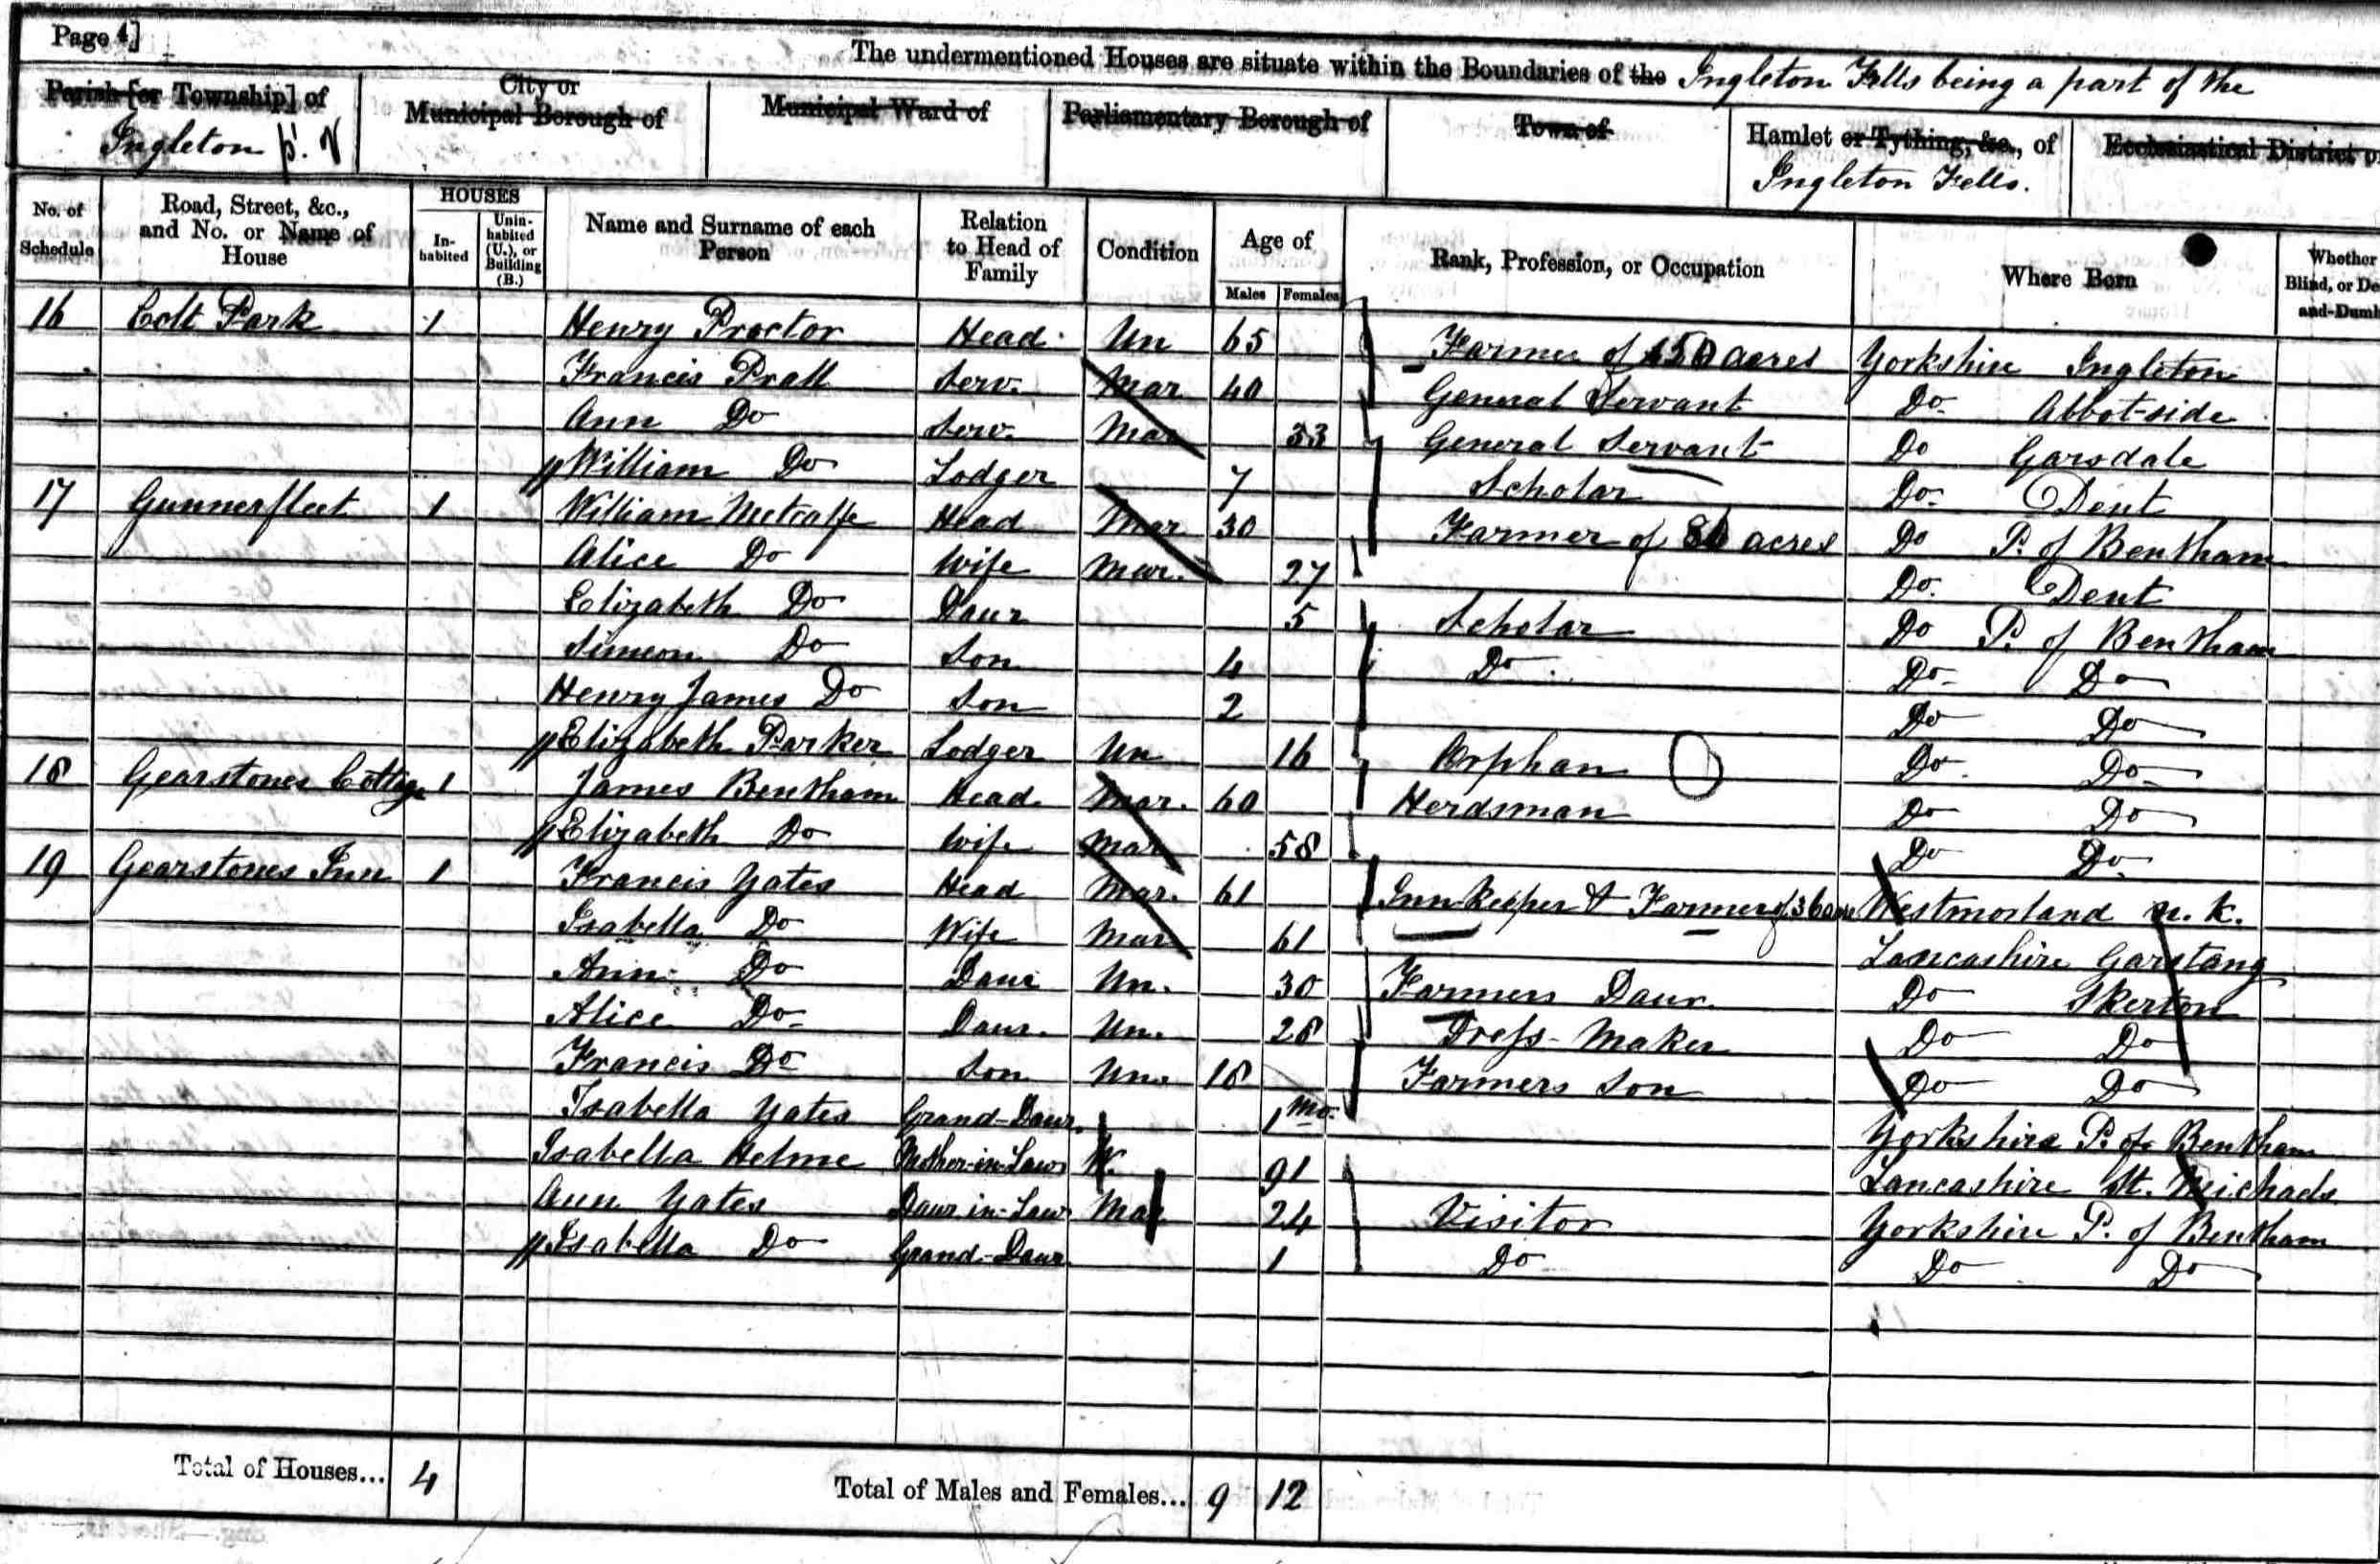 Page 4]
The undermentioned Houses are situate within the Boundaries of the Ingleton Fells being a part of the
Parish [or Township] of
Ingleton
City or
Municipal Borough of
Municipal Ward of
Parliamentary Borough of
Town of
Hamlet or Tything, &c., of
Ingleton Fells.
Ecclesiastical District
No. of Schedule
Road, Street, &c., and No. or Name of House
HOUSES
In-habited
Unin-habited (U.), or Building (B.)
Name and Surname of each Person
Relation to Head of Family
Condition
Age of
Males
Females
Rank, Profession, or Occupation
Where Born
Whether Blind, or De and-Dumb
16 Colt Park 1 Henry Proctor Head Un 65 Farmer of 650 acres Yorkshire Ingleton
Francis Pratt Serv. Mar 40 General Servant Do Abbot-side
Ann Do Serv. Mar 33 General Servant Do Garsdale
William Do Lodger 7 Scholar Do Dent
17 Gunnerfleet 1 William Metcalfe Head Mar 30 Farmer of acres Do P. of Bentham
Alice Do Wife Mar. 27 Do. Dent
Elizabeth Do Daur 5 Scholar Do P. of Bentham
Simeon Do Son 4 Do Do Do
Henry James Do Son 2 Do Do
Elizabeth Parker Lodger Un 16 Orphan Do Do
18 Gearstones Cottage 1 James Bentham Head Mar. 60 Herdsman Do Do
Elizabeth Do Wife Mar 58 Do Do
19 Gearstones Inn 1 Francis Yates Head Mar. 61 Inn-keeper & Farmer of 36 acres Westmorland N. K.
Isabella Do Wife Mar 61 Lancashire Garstang
Ann Do Daur Un. 30 Farmers Daur. Do Skerton
Alice Do Daur. Un. 28 Dress-Maker Do Do
Francis Do Son Un. 18 Farmers Son Do Do
Isabella Yates Grand-Daur. 1 Mo. Yorkshire P. of Bentham
Isabella Helme Mother-in-Law W. 91 Lancashire St. Meichaels
Ann Yates Daur-in-Law Mar 24 Visitor Yorkshire P. of Bentham
Isabella Do Grand-Daur 1 Do Do Do
Total of Houses... 4
Total of Males and Females... 9 12